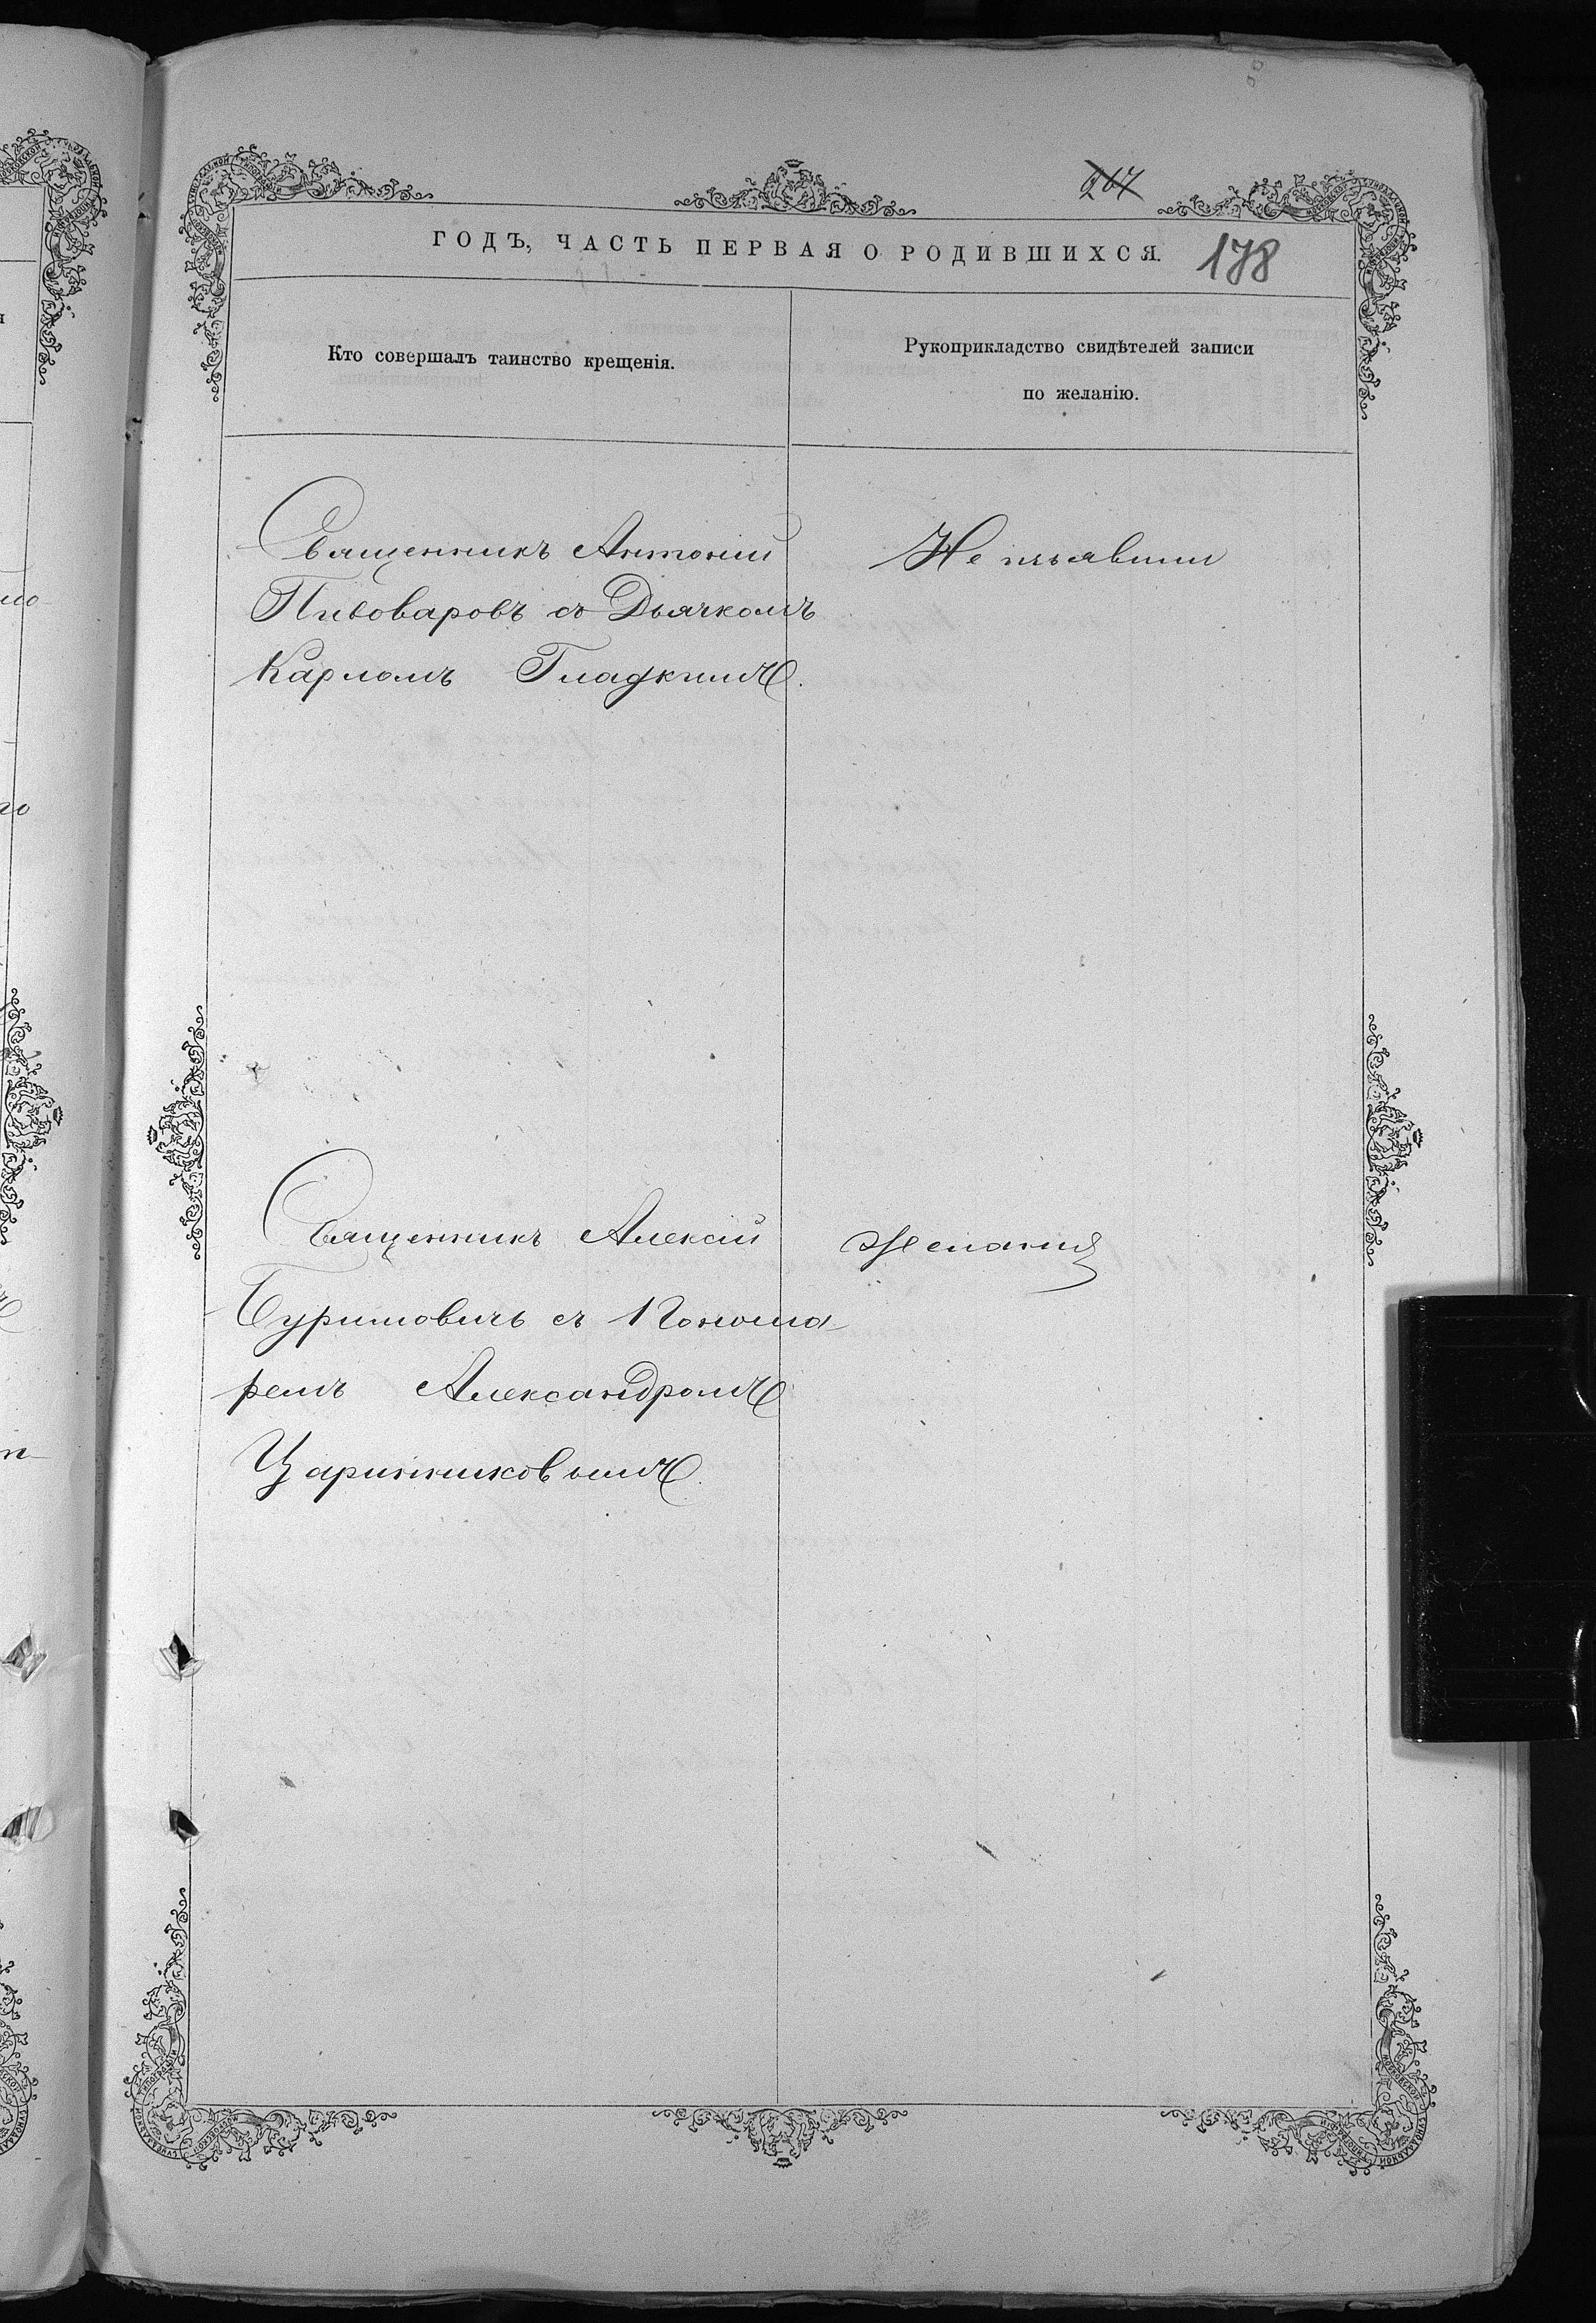 267
ГОДЪ, ЧАСТЬ ПЕРВАЯ О РОДИВШИХСЯ.
178
Кто совершалъ таинство крещенія.
Рукоприкладство свидѣтелей записи
по желанію.
Священникъ Антоній
Пивоваровъ съ Дьячкомъ
Карпомъ Гладкимъ.
Не изъявили
Священникъ Алексій
Буримовичъ съ Понома
ремъ Александромъ
Царинниковымъ.
желанія